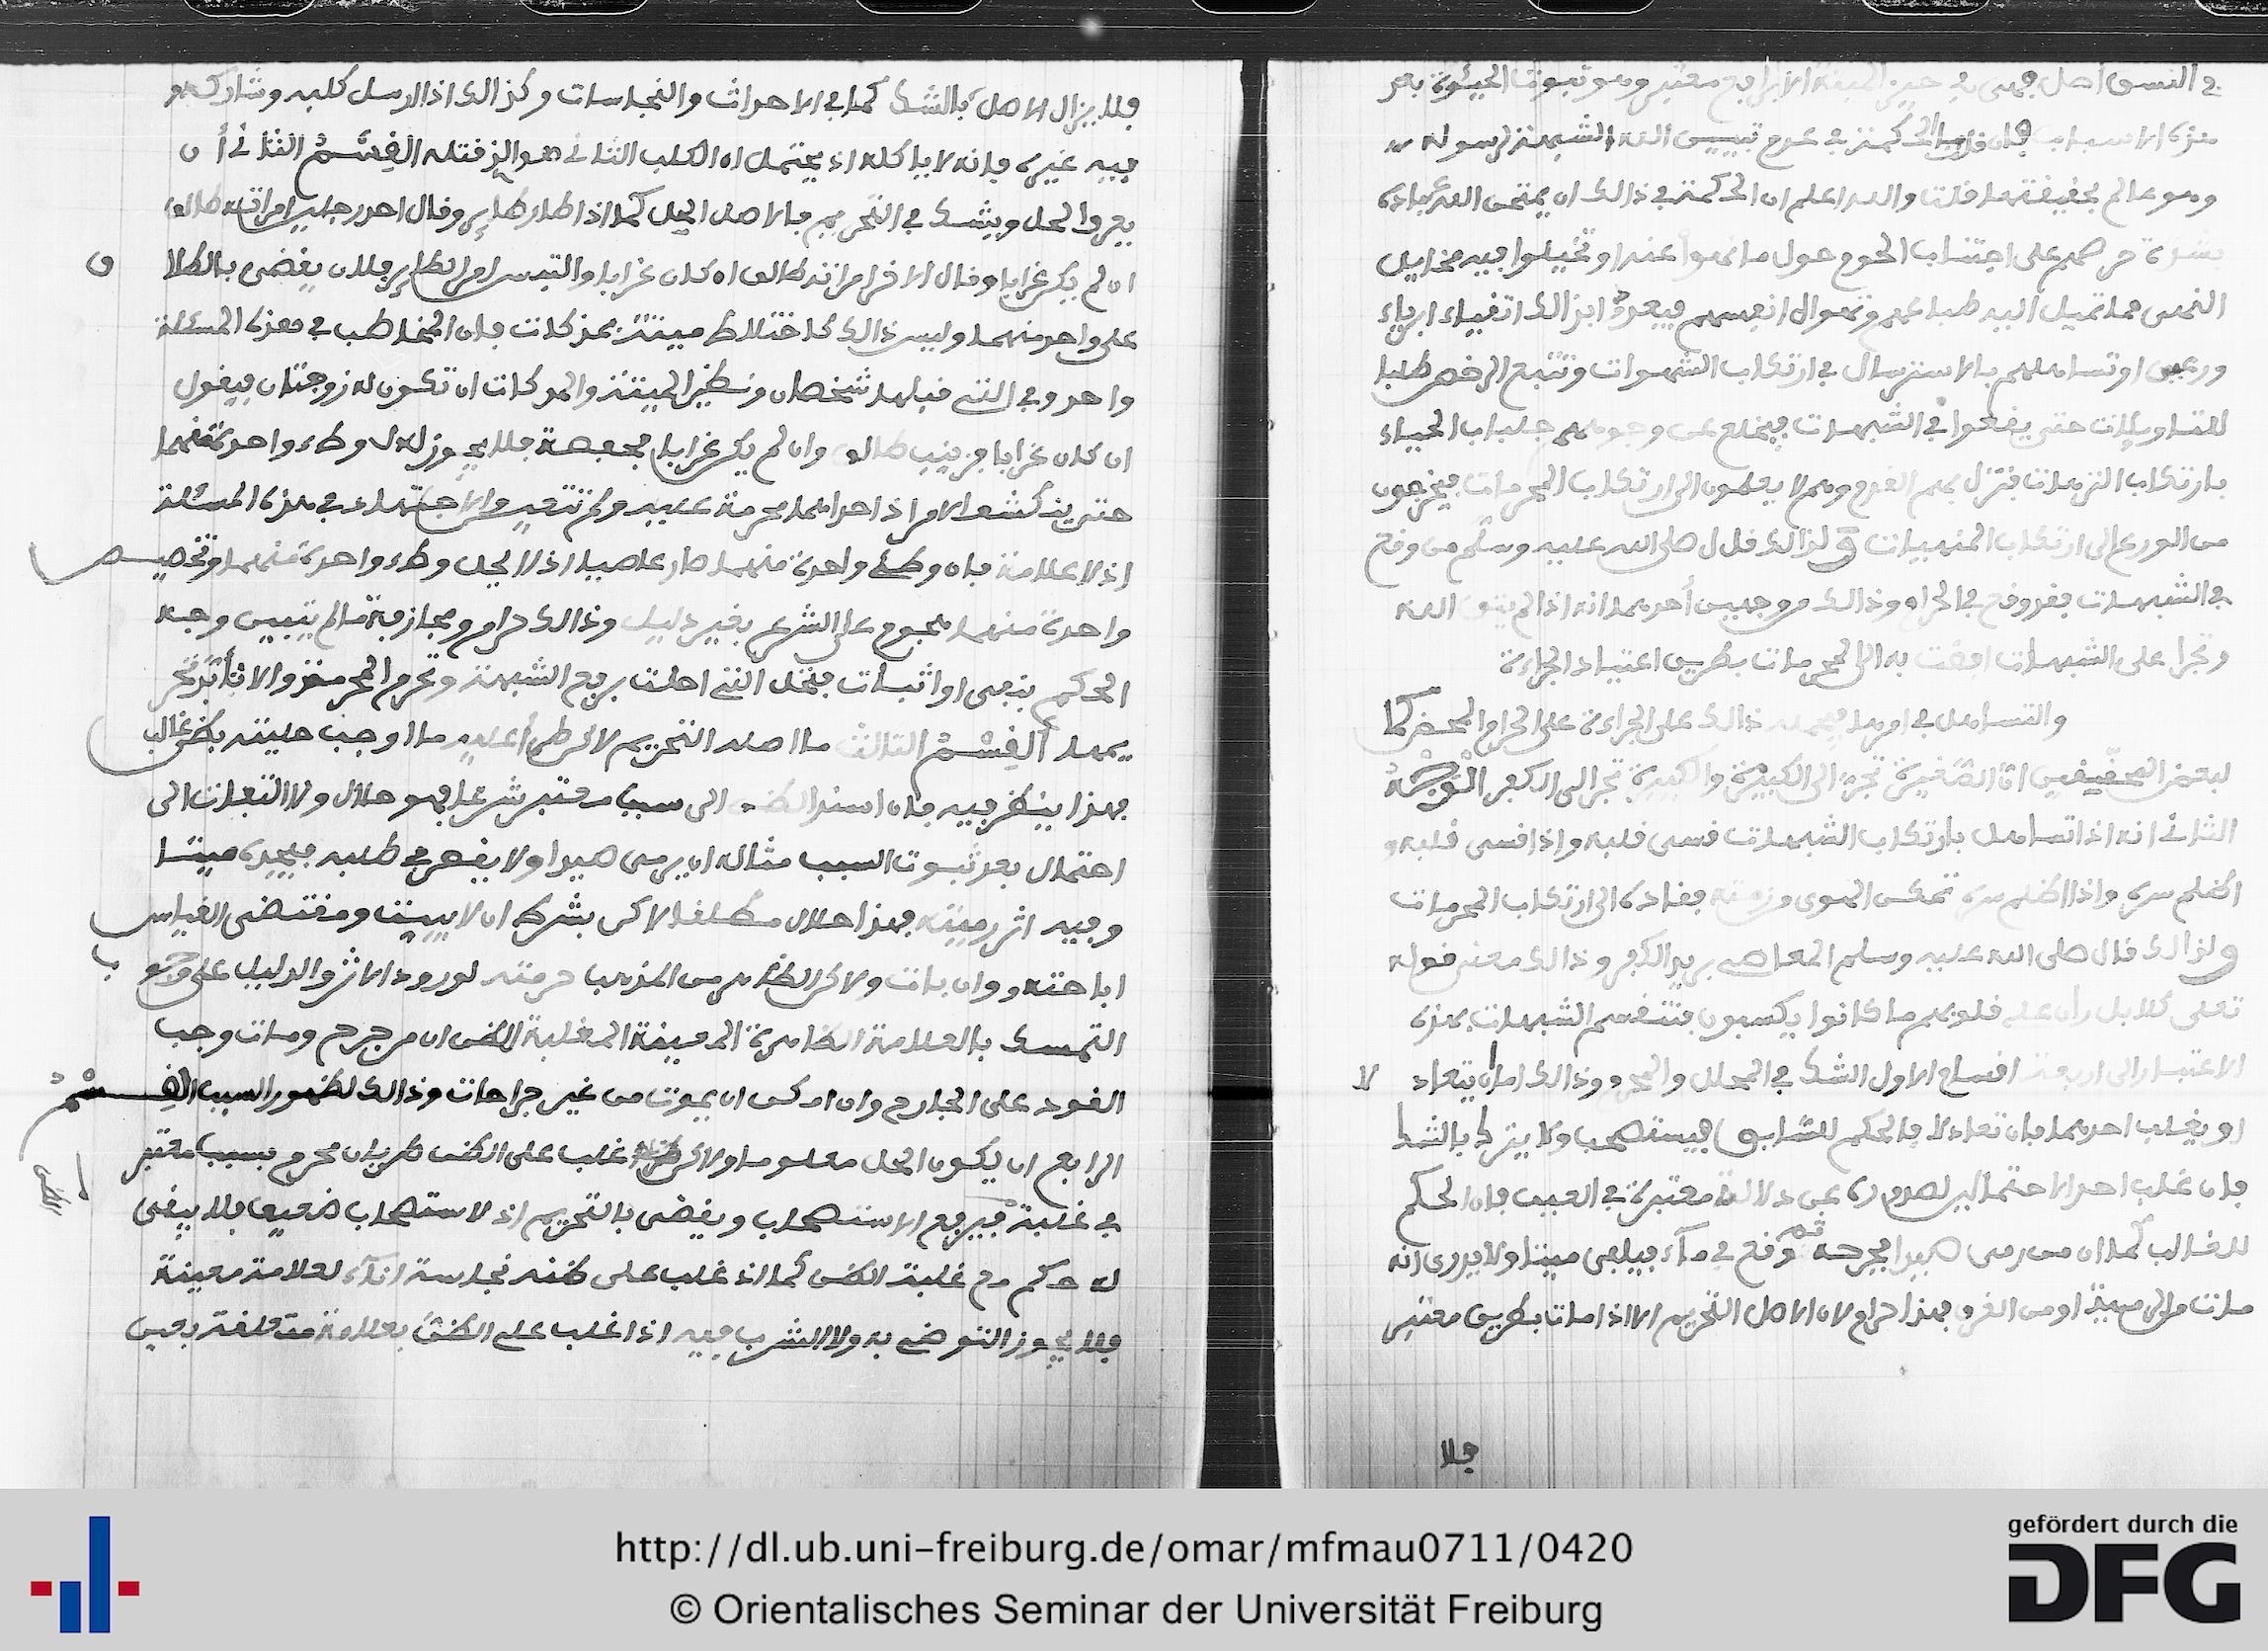 في النسو اصل فهى في حيز الحيفة الا برافع معتبر وهو ثبوت الحيثوة بعد
هذه الاسباب فإن قلت ما الحكمة في عدم تبيين الله الشبهة لرسوله
وهو عالم بحقيقتها قلت والله اعلم ان الحكمة في ذالك ان يمتحن الله عباده
بشدة حرصهم على اجتناب الحوم حول ما نهوا عنه او تخيلوا فيه مخايل
النهى مما تميل اليه طباعهم وتهوال انفسهم فيعدوا بذالك اتقياء ابرياء
ورعين او تساهلهم بالاسترسال في ارتكاب الشهوات وتتبع الرخص طلبا
للتاويلات حتى يقعوا في الشبهات فينخلع عن وجوههم جلباب الحياء
بارتكاب الترهات فتزل بهم القدم وهم لا يعلمون الى ارتكاب المحرمات فيخرجون
من الورع الى ارتكاب المنهيات ولذالك قال صلى الله عليه وسلم من وقع
في الشبهات فقد وقع في الحرام وذالك من وجهين أحدهما انه اذا لم يتق الله
وتجرا على الشبهات افضت به الى المحرمات بطريق اعتياد الجراءة
والتساهل في امرها فيحمله ذالك على الجراءة على الحرام المحض كما
لبعض المحققين ان الصغيرة تجر الى الكبيرة والكبيرة تجر الى الكفر الوجه
الثاني انه اذا تساهل بارتكاب الشبهات قسى قلبه واذا قسى قلبه
اظلم سره واذا اظلم سره تمكن الهوى منه فقاده الى ارتكاب المحرمات
ولذالك قال صلى الله عليه وسلم المعاصي بريد الكفر وذالك معنى قوله
تعلى كلا بل ران على قلوبهم ما كانوا يكسبون فتنقسم الشبهات بهذا
الاعتبار الى اربعة اقسام الاول الشك في المحلل والمحرم وذالك اما ان يتعاد لا
او يغلب احدهما فإن تعادلا فالحكم للسابق فيستصحب ولا يترك بالشك
فإن غلب احد الاحتمالين لصدوره عن دلالة معتبرة في العيب فإن الحكم
للغالب كما ان من رمى صيدا فجرحه ثم وقع في ماء فيلفى ميتا ولا يدرى انه
مات من الرمية او من الغرق فهذا حرام لان الاصل التحريم الا اذا مات بطريق معتبر
فلا
فلا يزال الاصل بالشك كما في الاحداث والنجاسات وكذالك اذا ارسل كلبه وشاركه
فيه غيره فإنه لا ياكله اذ يحتمل ان الكلب الثاني هو الذي قتله القسم الثاني أن
يعرف الحل ويشك في التحريم فالاصل الحل كما اذا طار طاير وقال احد رجلين امراته طالق
ان لم يكن غرابا وقال الاخر امراته طالق ان كان غرابا والتبس امر الطاير فلا يقضى بالطلا ق
على واحد منهما وليس ذالك كاختلاط ميتة بمذكات فإن المخاطب في هذه المسئلة
واحد وفي التي قبلها شخصان ونظير الميتة والمذكات ان تكون له زوجتان فيقول
ان كان غرابا فزينب طالق وان لم يكن غرابا فحفصة فلا يجوز له وطء واحدة منهما
حتى ينكشف الامر اذ احداهما محرمة عليه ولم تتعين والاجتهاد في هذه المسئلة
اذ لا علامة فإن وطئ واحدة منهما صار عاصيا اذ لا يحل وطء واحدة منهما وتخصيص
واحدة منهما هجوم على الشرع بغير دليل وذالك حرام ومجازفة ما لم يتبين وجه
الحكم بنفى او اثبات فتحل التي احلت برفع الشبهة وتحرم المحرمة والا تأبد تحر
يمها القسم الثالث ما اصله التحريم لاكن طرأ عليه ما اوجب حليته بظن غالب
فهذا ينظر فيه فإن اسند الظن الى سبب معتبر شرعا فهو حلال ولا التفات الى
احتمال بعد ثبوت السبب مثاله ان يرمى صيدا ولا يقصر في طلبه فيجده ميتا
وفيه اثر رميته فهذا حلال مطلقا لاكن بشرط ان لا يبيت ومقتضى القياس
اباحته وان بات ولاكن الظاهر من المذهب حرمته لورود الاثر والدليل على وجوب
التمسك بالعلامة الظاهرة المعينة المغلبة الظن ان من جرح ومات وجب
القود على الجارح وان امكن ان يموت من غير جراحات وذالك لظهور السبب القسم
الرابع ان يكون الحل معلوما ولاكن غلب على الظن طريان محرم بسبب معتبر
في غلبة الظن فيرفع الاستصحاب ويقضى بالتحريم اذ الاستصحاب ضعيف فلا يبقى
له حكم مع غلبة الظن كما اذا غلب على ظنه نجاسة اناء لعلامة معينة
فلا يجوز التوضي به ولا الشرب فيه اذا غلب على الظن بعلامة متعلقة بعين
http://dl.ub.uni-freiburg.de/omar/mfmau0711/0420
© Orientalisches Seminar der Universität Freiburg
gefördert durch die
DFG